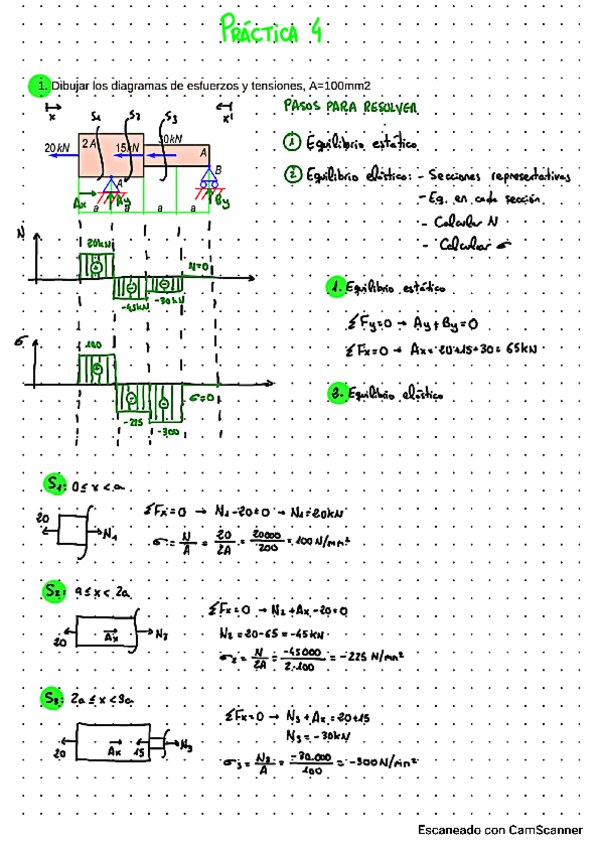 PRÁCTICA 4
1. Dibujar los diagramas de esfuerzos y tensiones, A=100mm2
x S1 S2 S3 x'
PASOS PARA RESOLVER
20kN 2A 15kN 30kN A
B
A
Ax Ay By
a a a a
1 Equilibrio estático
2 Equilibrio elástico: - Secciones representativas
- Eq. en cada sección.
- Calcular N
- Calcular σ
N
20kN
+
N=0
- -
-45kN -30kN
1. Equilibrio estático
ΣFy=0 → Ay+By=0
ΣFx=0 → Ax=20+15+30=65kN
σ
100
+
- -
σ=0
-225
-300
2. Equilibrio elástico
S1: 0≤x<a
20 N1
ΣFx=0 → N1-20=0 → N1=20kN
σ= N/A = 20/2A = 20000/200 = 100 N/mm²
S2: a≤x<2a
20 Ax N2
ΣFx=0 → N2+Ax-20=0
N2=20-65=-45kN
σ2= N/2A = -45000/2·100 = -225 N/mm²
S3: 2a≤x<3a
20 Ax 15 N3
ΣFx=0 → N3+Ax=20+15
N3=-30kN
σ3= N3/A = -30.000/100 = -300N/mm²
Escaneado con CamScanner